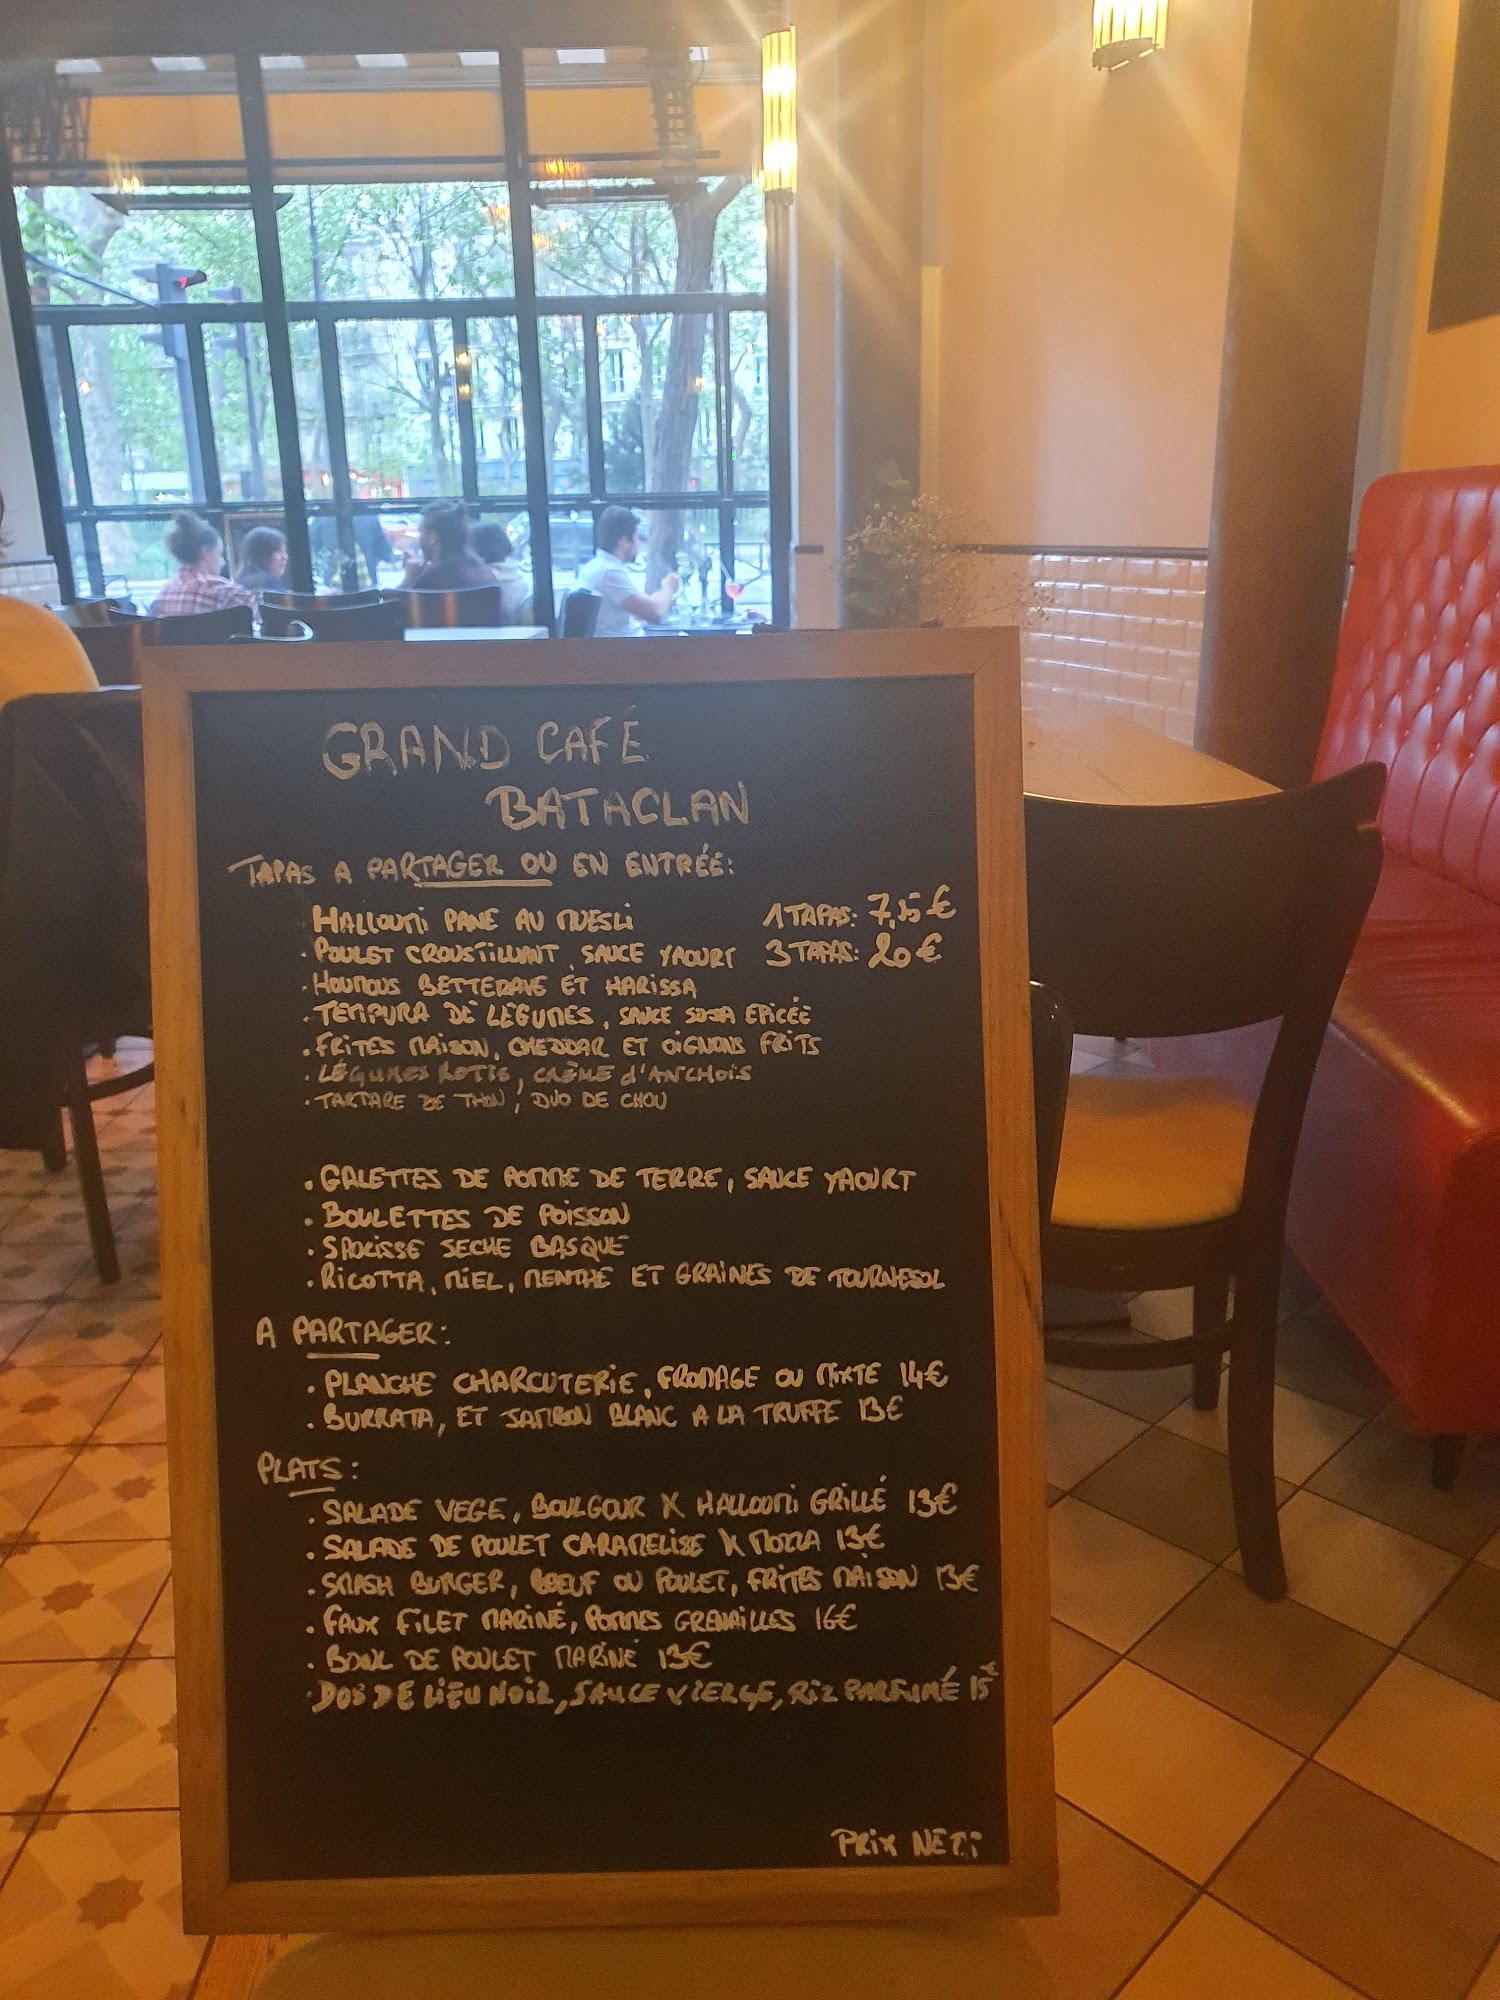 GRAND CAFÉ
BATACLAN
TAPAS A PARTAGER OU EN ENTRÉE:
HALLOUMI PANE AU MUESLI 1 TAPAS: 7,35 €
· POULET CROUSTILLANT, SAUCE YAOURT 3 TAPAS: 20 €
· HOUMOUS BETTERAVE ET HARISSA
· TEMPURA DE LÉGUMES, SAUCE SOJA EPICÉE
· FRITES MAISON, CHEDDAR ET OIGNONS FRITS
· LÉGUMES ROTIS, CRÈME d'ANCHOIS
· TARTARE DE THON, DUO DE CHOU
· GALETTES DE POMME DE TERRE, SAUCE YAOURT
· BOULETTES DE POISSON
· SAUCISSE SECHE BASQUE
· RICOTTA, MIEL, MENTHE ET GRAINES DE TOURNESOL
A PARTAGER:
· PLANCHE CHARCUTERIE, FROMAGE OU MIXTE 14€
· BURRATA, ET JAMBON BLANC A LA TRUFFE 13€
PLATS:
· SALADE VEGE, BOULGOUR X HALLOUMI GRILLÉ 13€
· SALADE DE POULET CARAMELISE X MOZZA 13€
· SMASH BURGER, BOEUF OU POULET, FRITES MAISON 13€
· FAUX FILET MARINÉ, POMMES GRENAILLES 16€
· BOWL DE POULET MARINÉ 13€
· DOS DE LIEU NOIR, SAUCE VIERGE, RIZ PARFUMÉ 15€
PRIX NET: